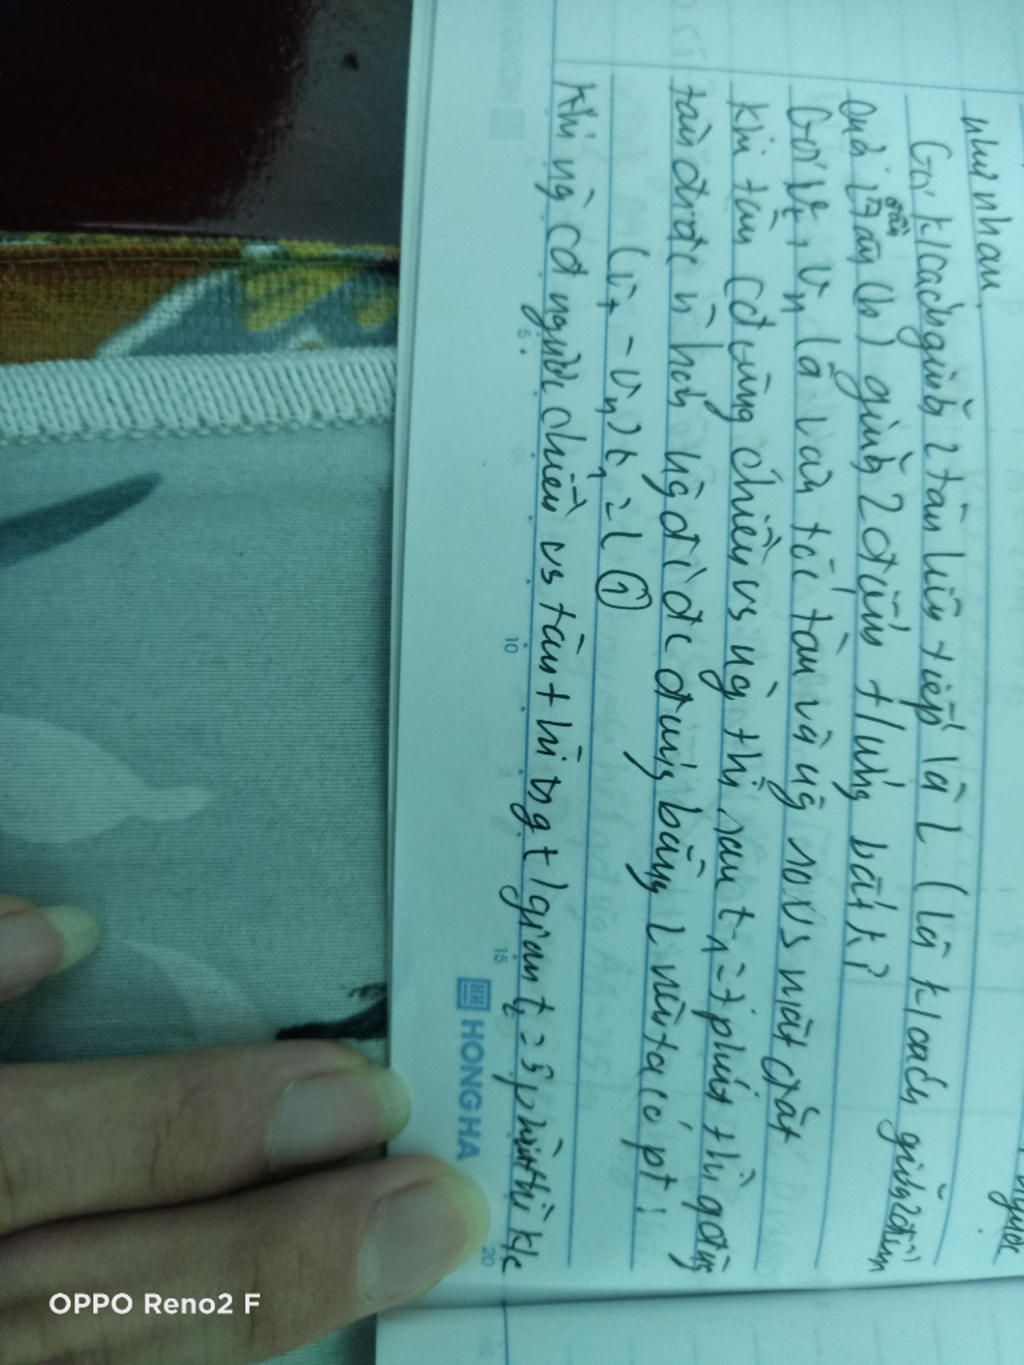 như nhau.
Gọi k/cách giữa 2 tàu liên tiếp là L (là k/cách giữa 2 điểm
đầu (h) giữa 2 điểm tương bất kì
Gọi vt, vn là vận tốc tàu và ng so vs mặt đất
Khi tàu cđ cùng chiều vs ng thì sau t1 = 7 phút thì qđường
tàu đi được hơn ng đi đc đúng bằng L nên ta có pt:
(vt - vn) t1 = L (1)
Khi ng cđ ngược chiều vs tàu thì tg t/gian t2 = 5 phút thì k/c
ngược
5
10
15
20
HONG HA
OPPO Reno2 F